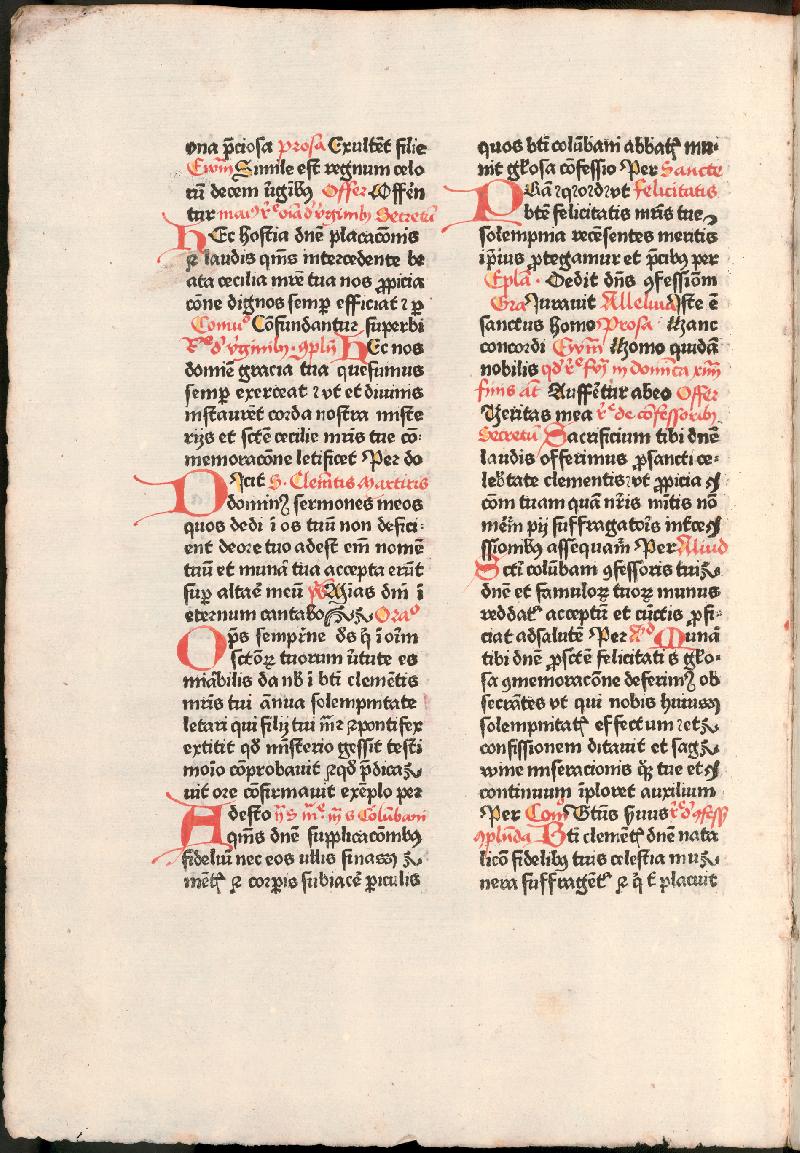 ona p̄ciosa prosa Exultēt filie
Ewm̄ Simile est regnum celo
rū decem v̄gībꝰ Offer Offēn
tur maiꝰ r̄ oīa d' v̄ginibꝫ Secretū
HEc hostia dn̄e placacōnis
⁊ laudis qm̄s intercedente be
ata cecilia mr̄e tua nos ꝓpicia
cōne dignos semꝑ efficiat ⁊ ꝑ
Comuo Cōfundantur superbi
Hec nos
domīe gracia tua quesumus
semꝑ exerceat ⁊ vt et diuinis
instauret corda nostra miste
rijs et sctē cecilie mr̄is tue cō⸗
memoracōne letificet Per do
DIcit S. Clemētis Martiris
dominꝰ sermones meos
quos dedi ī os tuū non defici⸗
ent deore tuo adest em̄ nomē
tuū et munā tua accepta erūt
suꝑ altāe meū ps Mīas dm̄ ī
eternum cantabo Orao
Oꝑs sempīne ds q̄ ī oīm
sctōꝝ tuorum v̄tute es
miābilis da nb̄ ī bti clemētis
mr̄is tui ānua solempnitate
letari qui filij tui mr̄ ⁊pontifex
extitit qd̄ mīsterio gessit testi
moīo cōprobauit ⁊qd̄ p̄dica
uit ore cōfirmauit exēplo per
Adesto Colūbani
qm̄s dn̄e supplicacōnibꝫ
fideliū nec eos ullis sinas
mētꝭ ⁊ corꝑis subiacē ꝑiculis
quos bti colūbani abbatꝭ mu⸗
nit glōsa cōfessio Per Sancte
PRā felicitatis
btē felicitatis mr̄is tue
solempnia recēsentes meritis
ip̄ius ꝓtegamur et p̄cibꝫ per
Epla. Dedit dn̄s ꝯfessiōm
Gra Jurauit Alleluia Iste ē
sanctus homo Prosa Hanc
concordi Ewm̄ Homo quidā
nobilis in domīca xiiij
Auffētur abeo Offer
Veritas mea r̄ de cōfessoribꝫ
Secretū Sacrificium tibi dn̄e
laudis offerimus ꝓsancti ce⸗
lebtate clementis vt ꝓpicia ꝯ
cōm tuam quā nr̄is mītis nō
mēim pij suffragatoīs int̄ceꝯ
ssionibꝫ assequam̄ Per Aliud
Scti colūbani ꝯfessoris tui
dn̄e et famuloꝝ tuoꝝ munus
reddatꝰ acceptū et cūctis ꝓfi⸗
ciat adsalutē Per Munā
tibi dn̄e ꝓsctē felicitatis glō⸗
sa ꝯmemoracōne deferimꝰ ob
secrātes vt qui nobis huius
solempnitatꝭ effectum ⁊et
confissionem ditauit et sag
wine miseracionis qs̄ tue et
continuum īploret auxilium
Per Com̄ Btūs huus
ꝯplnda Bti clemētꝭ dn̄e nata
licō fidelibꝫ tuis celestia mu
nera suffragētꝰ ⁊ q̄ t̄ placuit